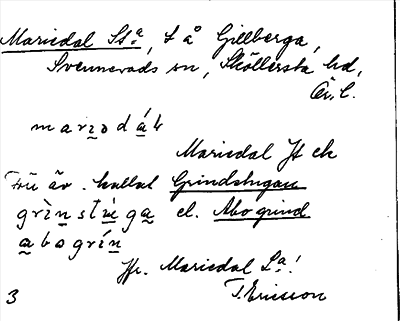 Mariedal St.a, t å Gillberga,
Svennevads sn, Sköllersta hd,
Ör. l.
mariədál
Mariedal Jt ek
Förr äv. kallat Grindstugan
grìnstùga el. Abogrind
abogrín
Jfr. Mariedal La!
T. Ericsson
3